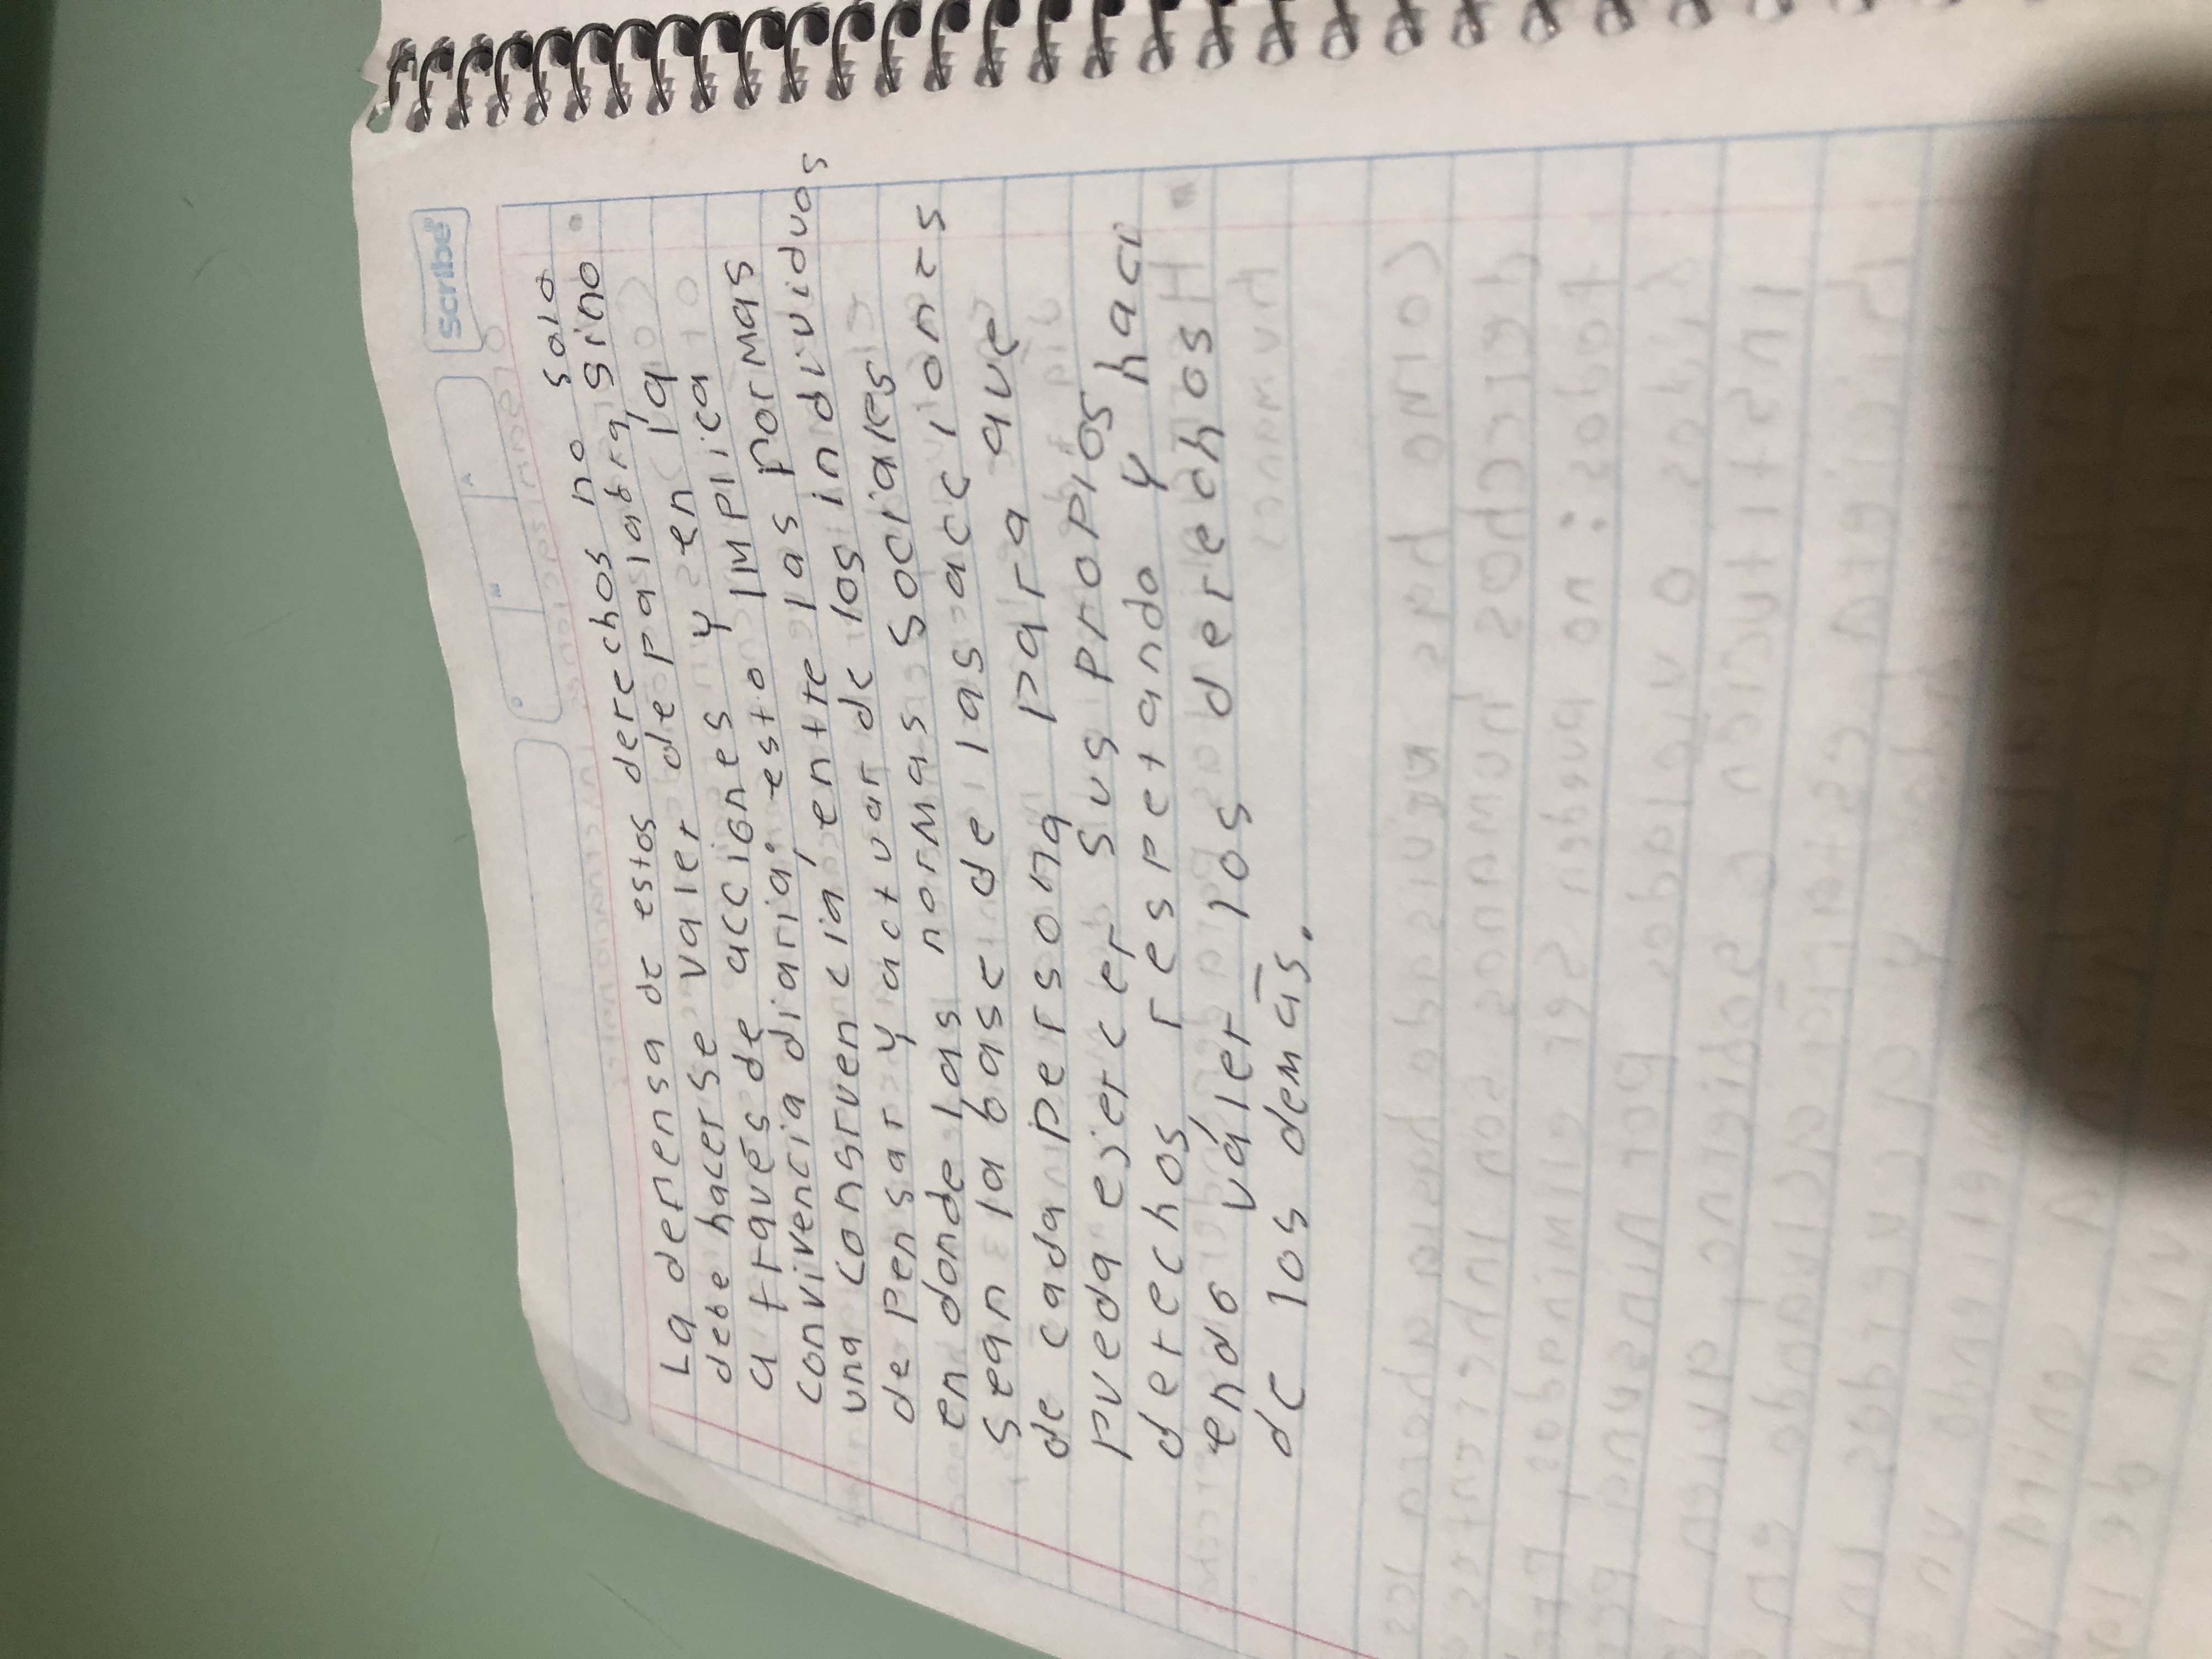 scribe
La defensa de estos derechos no solo
debe hacerse valer de palabra sino
a través de acciones y en la
convivencia diaria, esto implica
una congruencia entre las formas
de pensar y actuar de los individuos
en donde las normas sociales
sean la base de las acciones
de cada persona para que
pueda ejercer sus propios
derechos respetando y haci
endo valer los derechos
de los demás.